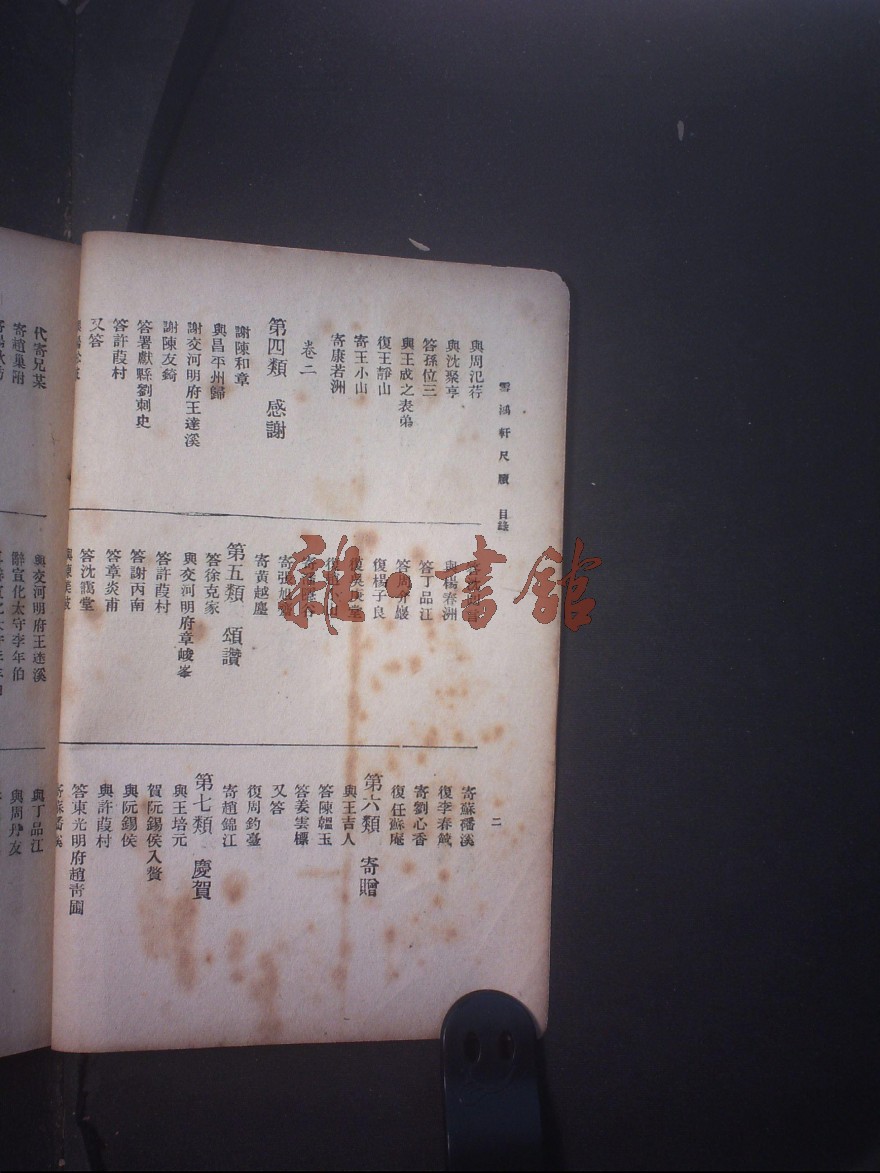 雪鴻軒尺牘 目錄
二
與周氾荇
與沈聚亭
答孫位三
與王成之表弟
復王靜山
寄王小山
寄康若洲
卷二
第四類 感謝
謝陳和章
與昌平州歸
謝交河明府王達溪
謝陳友錡
答署獻縣劉刺史
答許葭村
又答
與楊春洲
答丁品江
答周介巖
復楊子良
復吳庚堂
寄張旭
寄黃越塵
第五類 頌讚
答徐克家
與交河明府章峻峯
答許葭村
答謝丙南
答章炎甫
答沈靄堂
寄蘇潘溪
復李春
寄劉心香
復任蘇庵
第六類 寄贈
與王吉人
答陳韞玉
答姜雲標
又答
復周鈞臺
寄趙錦江
第七類 慶賀
與王培元
賀阮錫侯入贅
與阮錫侯
與許葭村
答東光明府趙靑圃
代寄兄某
寄趙巢
與交河明府王達溪
辭宣化太守李年伯
與丁品江
與周丹友
雜·書館